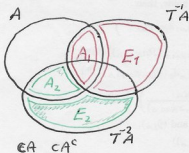 A
T⁻¹A
A₁
E₁
A₂
E₂
T⁻²A
⊂A^c